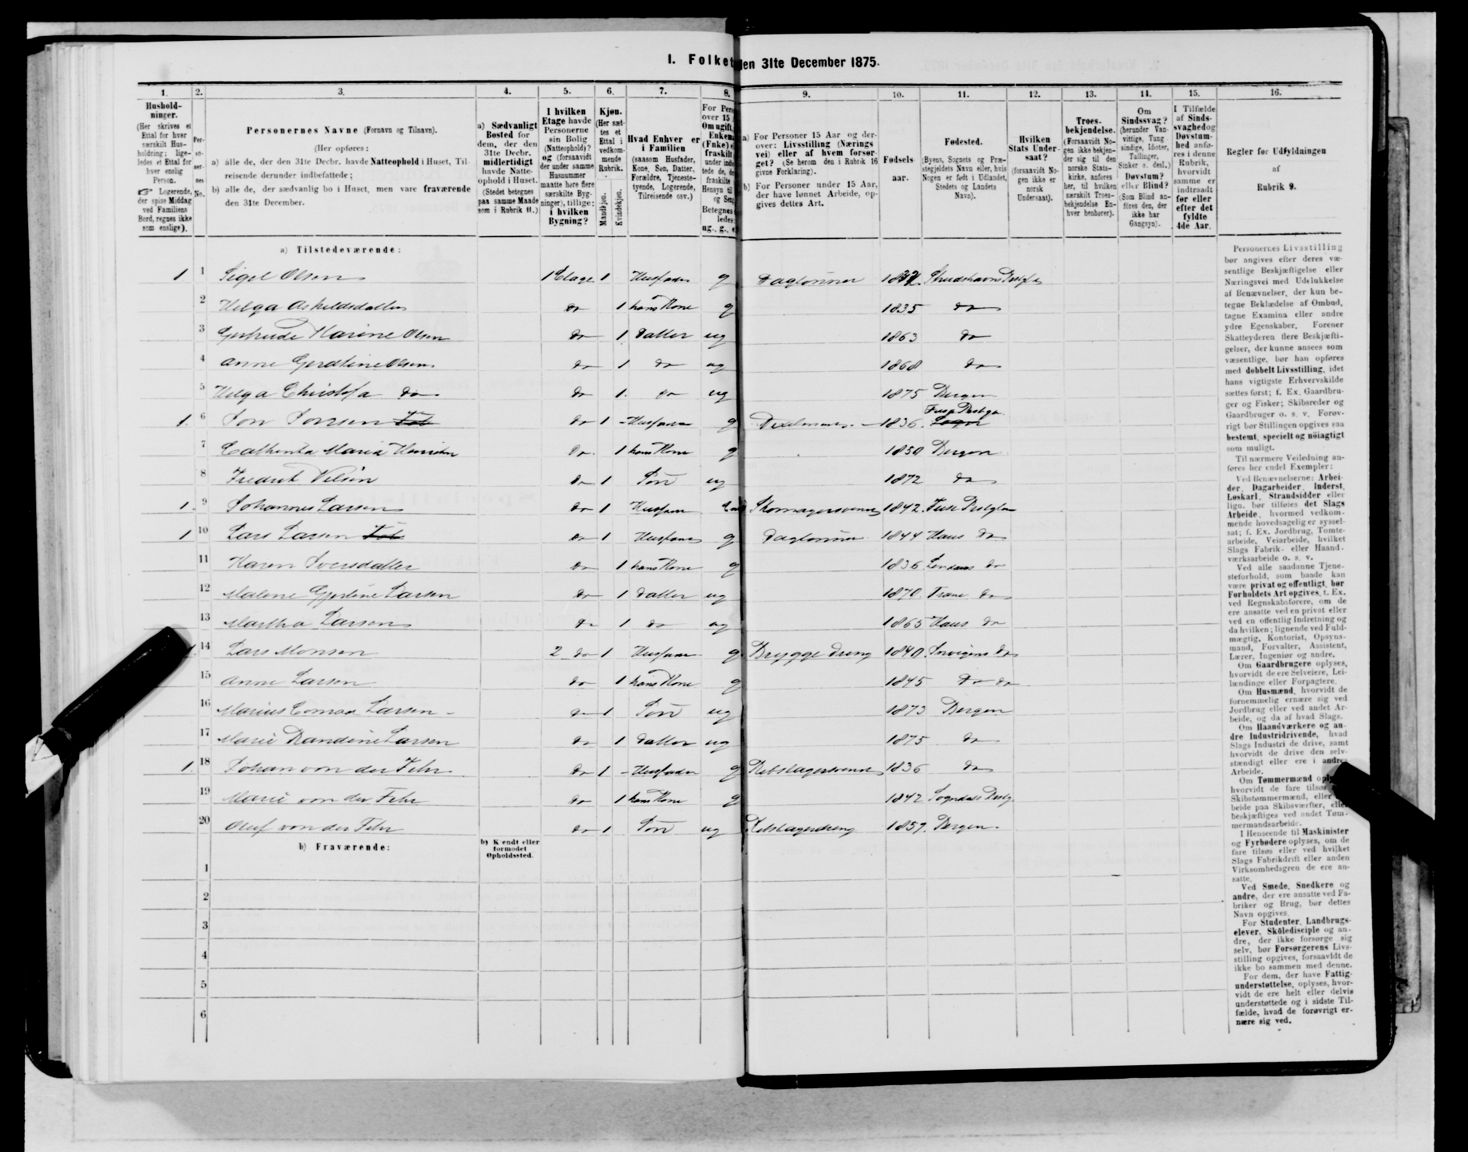 I. Folket den 31te December 1875.
1. 2. 3. 4. 5. 6. 7. 8. 9. 10. 11. 12. 13. 14. 15. 16.
Hushold-
ninger.
(Her skrives et
Ettal for hver
særskilt Hus-
holdning; lige-
ledes et Ettal for
hver enslig
Person.
☞ Logerende,
der spise Middag
ved Familiens
Bord, regnes ikke
som enslige).
Per-
so-
ner-
nes
No.
Personernes Navne (Fornavn og Tilnavn).
(Her opføres:
a) alle de, der den 31te Decbr. havde Natteophold i Huset, Til-
reisende derunder indbefattede;
b) alle de, der sædvanlig bo i Huset, men vare fraværende
den 31te December.
a) Sædvanligt
Bosted for
dem, der den
31te Decbr.
midlertidigt
havde Natte-
ophold i Huset.
(Stedet betegnes
paa samme Maade
som i Rubrik 11.)
I hvilken
Etage havde
Personerne
sin Bolig
(Natteophold)?
og (forsaavidt
der under samme
Husnummer
maatte høre flere
særskilte Byg-
ninger), tillige:
i hvilken
Bygning?
Kjøn.
(Her sæt-
tes et
Ettal i
vedkom-
mende
Rubrik.
Mandkjøn.
Kvindekjøn.
Hvad Enhver er
i Familien
(saasom Husfader,
Kone, Søn, Datter,
Forældre, Tjeneste-
tyende, Logerende,
Tilreisende osv.)
For Pers
over 15
Om ugift,
Enkem
(Fnke) e
fraskilt
a) For Personer 15 Aar og der-
over: Livsstilling (Nærings
vei) eller af hvem forsør-
get? (Se herom den i Rubrik 16
givne Forklaring).
b) For Personer under 15 Aar,
der have lønnet Arbeide, op-
gives dettes Art.
Fødsels
aar.
Fødested.
(Byens, Sognets og Præ-
stegjeldets Navn eller, hvis
Nogen er født i Udlandet,
Stedets og Landets
Navn).
Hvilken
Stats Under-
saat?
(forsaavidt No-
gen ikke er
norsk
Undersaat).
Troes-
bekjendelse.
(Forsaavidt No-
gen ikke bekjen-
der sig til den
norske Stats-
kirke, anføres
her, til hvilken
særskilt Troes-
bekjendelse En-
hver henhører).
Om
Sindssvag?
(herunder Van-
vittige, Tung
sindige, Idioter,
Tullinger,
Sinker o. desl.)
Døvstum?
eller Blind?
(Som Blind an-
føres den, der
ikke har
Gangsyn).
I Tilfælde
af Sinds-
svaghed og
Døvstum-
hed anfø-
res i denne
Rubrik,
hvorvidt
samme er
indtraadt
før eller
efter det
fyldte
4de Aar.
Regler før Udfyldningen
af
Rubrik 9.
a) Tilstedeværende:
1 1 Sigel Olsen 1 Etage 1 Husfader g Daglønner
2 Helga do 1 hans Kone g 1835 do
3 Gertrude Marine Olsen do 1 datter ug 1863 do
4 Anne Gerdtine Olsen do 1 do ug 1868 do
5 Helga Christofa do do 1 do ug 1875 Bergen
1 6 Jon Jonsen do 1 Husfader g 1836
7 Maria do 1 hans Kone g 1850 Bergen
8 Fredrik do 1 Søn ug 1872 do
1 9 Johannes Larsen do 1 Husfader Skomagersvend 1842
1 10 Lars Larsen do 1 Husfader g Daglønner 1844 Haus do
11 Karen Iversdatter do 1 hans Kone g 1836 do
12 Malene Gjertine Larsen do 1 datter ug 1870 do
13 Martha Larsen do 1 do ug 1865 Haus do
14 Lars Monsen 2 do 1 Husfader g Brygge dreng 1840 do
15 Anne Larsen do 1 hans Kone g 1845 do do
16 Marius Larsen do 1 Søn ug 1873 Bergen
17 Marie Larsen do 1 datter ug 1875 do
1 18 Johan von der Fehr do 1 Husfader g Rebslagersvend 1836 do
19 Marie von der Fehr do 1 hans Kone g 1842 Sogndals
20 Oluf von der Fehr do 1 Søn ug Rebslagerdreng 1859 Bergen
b) Fraværende:
b) Kjendt eller
formodet
Opholdssted.
1
2
3
4
5
6
Personernes Livsstilling
bør angives efter deres væ-
sentlige Beskjæftigelse eller
Næringsvei med Udelukkelse
af Benævnelser, der kun be-
tegne Beklædelse af Ombud,
tagne Examina eller andre
ydre Egenskaber. Forener
Skatteyderen flere Beskjæfti-
gelser, der kunne ansees som
væsentlige, bør han opføres
med dobbelt Livsstilling, idet
hans vigtigste Erhvervskilde
sættes først; f. Ex. Gaardbru-
ger og Fisker; Skibsreder og
Gaardbruger o. s. v. Forøv-
rigt bør Stillingen opgives saa
bestemt, specielt og nøiagtigt
som muligt.
Til nærmere Veiledning an-
føres her endel Exempler:
Ved Benævnelserne: Arbei-
der, Dagarbeider, Inderst,
Løskarl, Strandsidder eller
lign. bør tilføies det Slags
Arbeide, hvormed vedkom-
mende hovedsagelig er syssel-
sat; f. Ex. Jordbrug, Tomte-
arbeide, Veiarbeide, hvilket
Slags Fabrik- eller Haand-
værksarbeide o. s. v.
Ved alle saadanne Tjene-
steforhold, som baade kan
være privat og offentligt, bør
Forholdets Art opgives, f. Ex.
ved Regnskabsførere, om de
ere ansatte ved en privat eller
ved en offentlig Indretning og
da hvilken; lignende ved Fuld-
mægtig, Kontorist, Opsyns-
mand, Forvalter, Assistent,
Lærer, Ingeniør og andre.
Om Gaardbrugere oplyses,
hvorvidt de ere Selveiere, Lei-
lændinge eller Forpagtere.
Om Husmænd, hvorvidt de
fornemmelig ernære sig ved
Jordbrug eller ved andet Ar-
beide, og da af hvad Slags.
Om Haandværkere og an-
dre Industridrivende, hvad
Slags Industri de drive, samt
hvorvidt de drive den selv-
stændigt eller ere i andres
Arbeide.
Om Tømmermænd
hvorvidt de fare tilsøs
Skibstømmermænd, eller
beide paa Skibsværfter, eller
beskjæftiges ved andet Tøm-
mermandsarbeide.
I Henseende til Maskinister
og Fyrbødere oplyses, om de
fare tilsøs eller ved hvilket
Slags Fabrikdrift eller anden
Virksomhedsgren de ere an-
satte.
Ved Smede, Snedkere og
andre, der ere ansatte ved Fa-
briker og Brug, bør dettes
Navn opgives.
For Studenter, Landbrugs-
elever, Skoledisciple og an-
dre, der ikke forsørge sig
selv, bør Forsørgerens Livs-
stilling opgives, forsaavidt de
ikke bo sammen med denne.
For dem, der have Fattig-
understøttelse, oplyses, hvor-
vidt de ere helt eller delvis
understøttede og i sidste Til-
fælde, hvad de forøvrigt er-
nære sig ved.